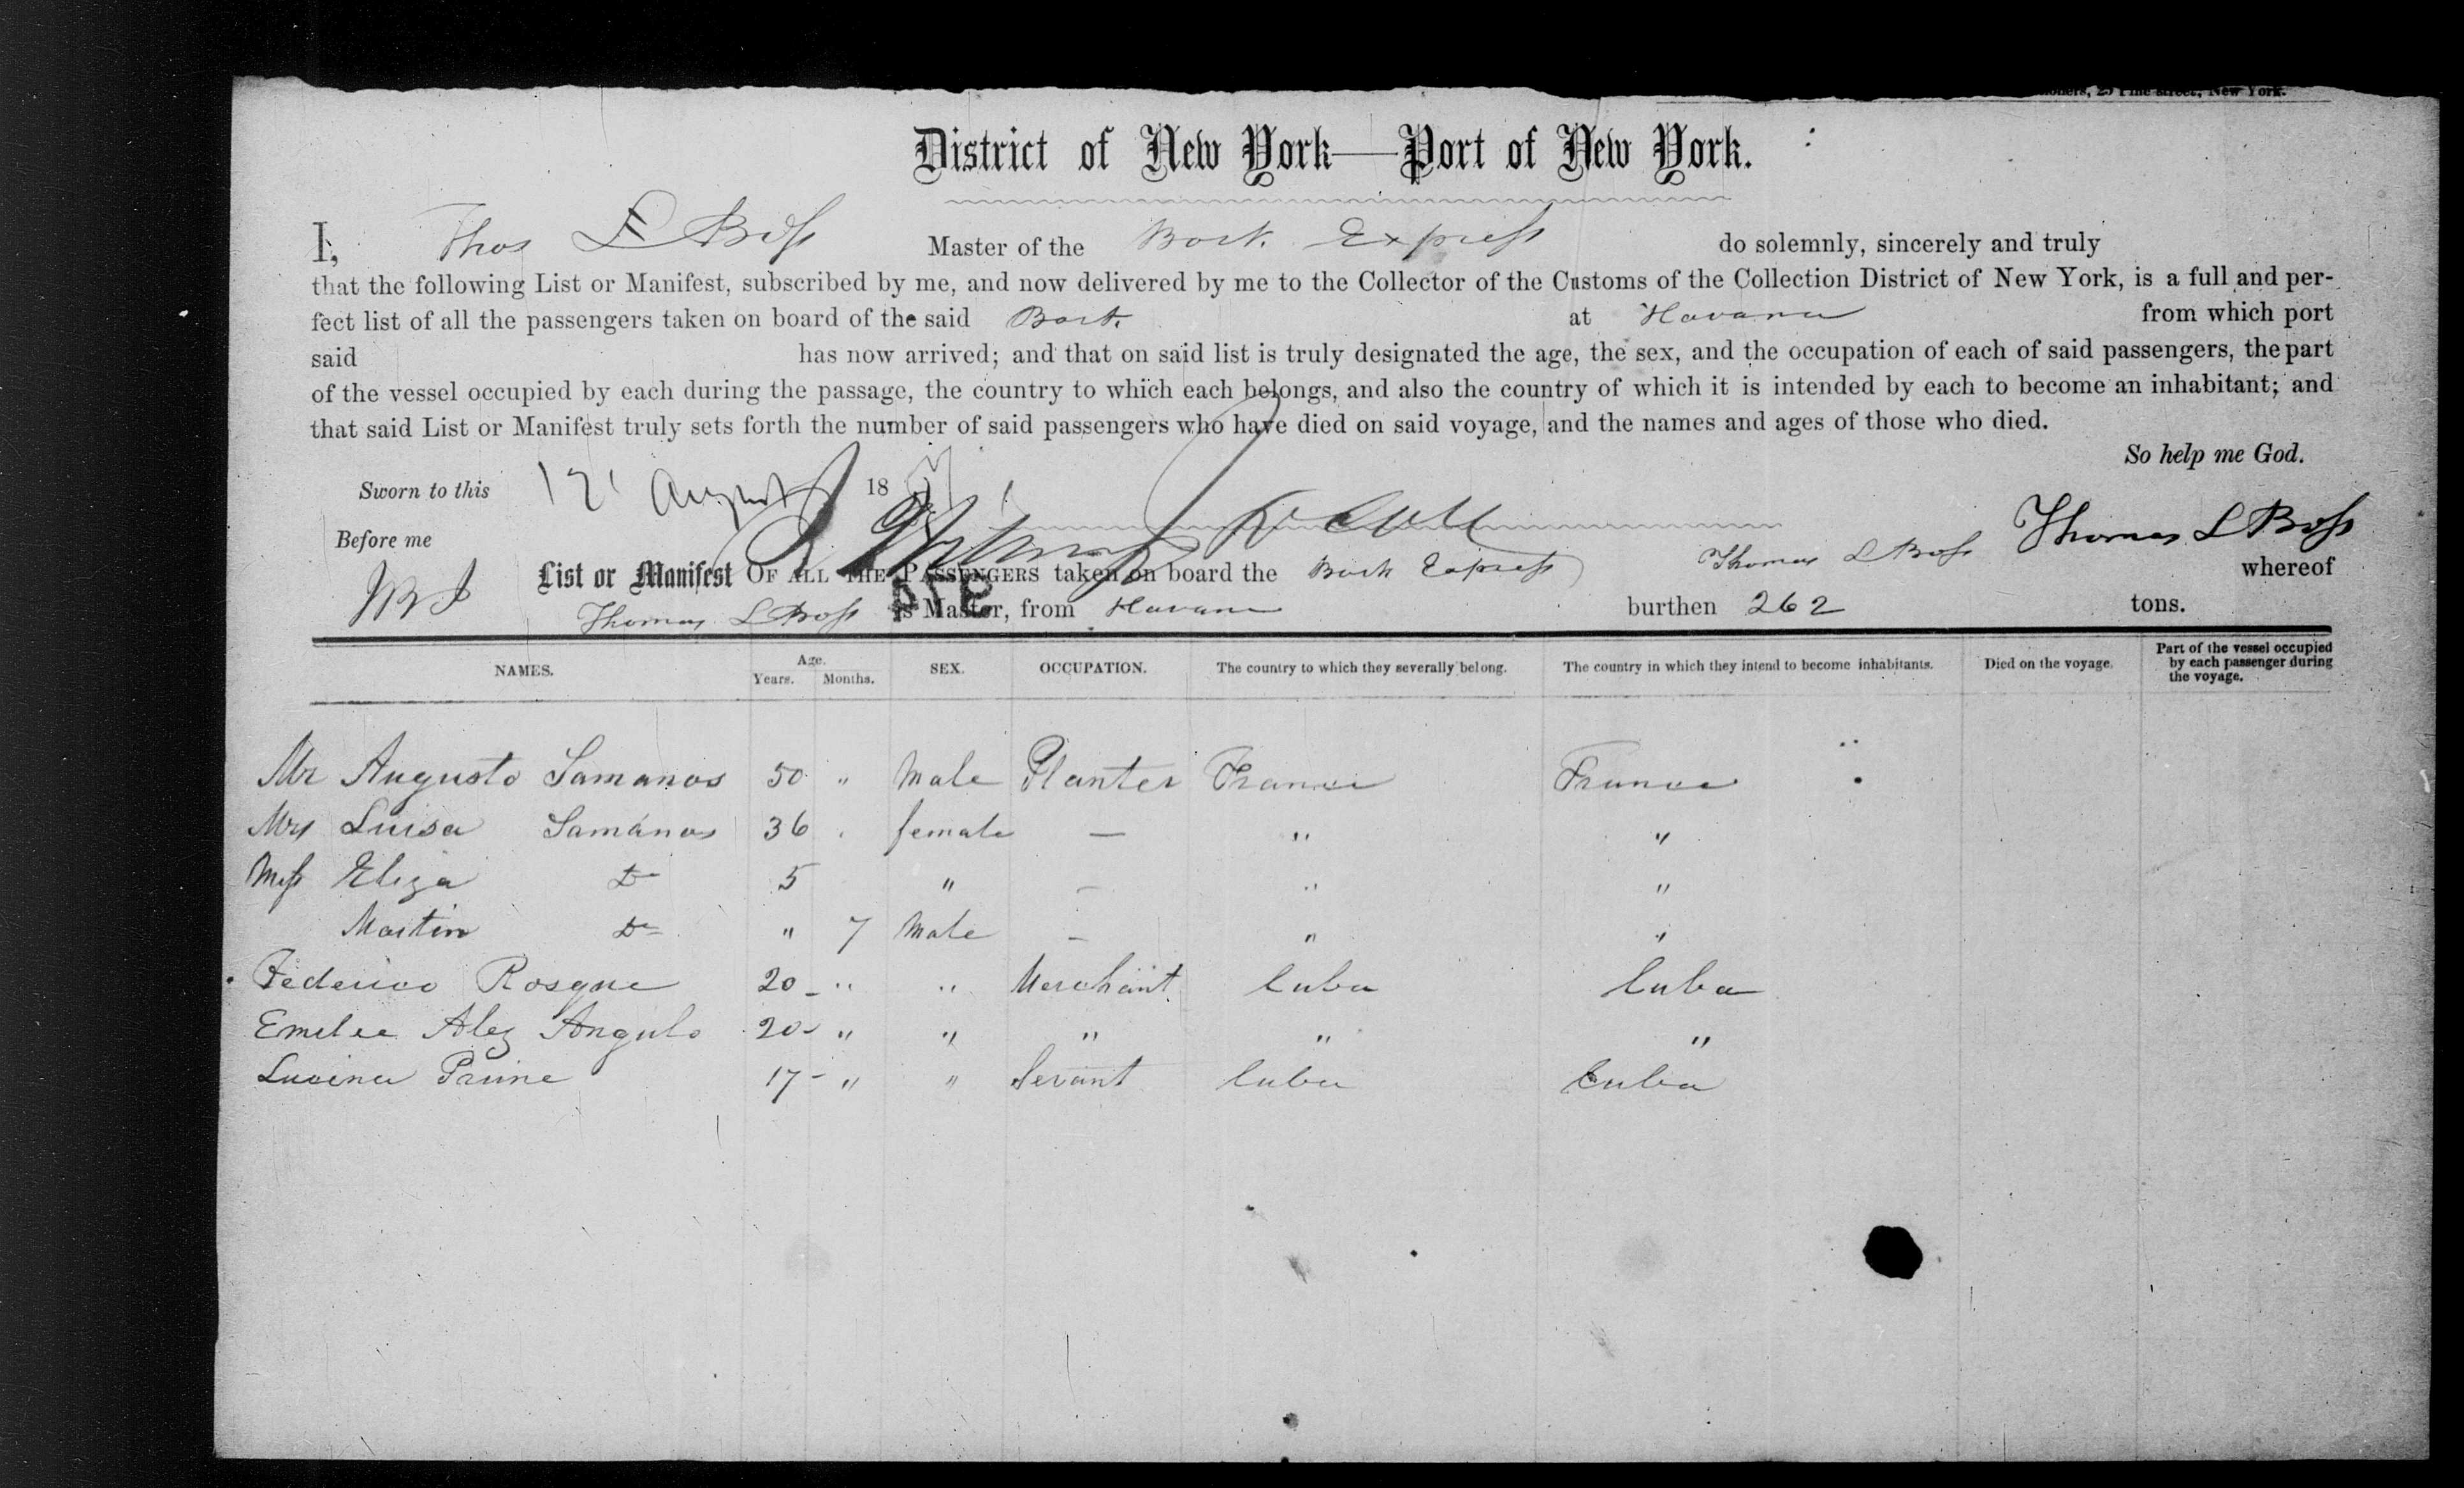 25 Pine Street, New York.
District of New York—Port of New York.
I, Thos L Boss Master of the Bark Express do solemnly, sincerely and truly
that the following List or Manifest, subscribed by me, and now delivered by me to the Collector of the Customs of the Collection District of New York, is a full and per-
fect list of all the passengers taken on board of the said Bark at Havana from which port
said has now arrived; and that on said list is truly designated the age, the sex, and the occupation of each of said passengers, the part
of the vessel occupied by each during the passage, the country to which each belongs, and also the country of which it is intended by each to become an inhabitant; and
that said List or Manifest truly sets forth the number of said passengers who have died on said voyage, and the names and ages of those who died.
So help me God.
Sworn to this August 18
Before me Thomas L Boss
List or Manifest OF ALL THE PASSENGERS taken on board the Bark Express Thomas L Boss whereof
Thomas L Boss is Master, from Havana burthen 262 tons.
NAMES. Age. Years. Months. SEX. OCCUPATION. The country to which they severally belong. The country in which they intend to become inhabitants. Died on the voyage. Part of the vessel occupied by each passenger during the voyage.
Mr Augusto Samanos 50 " Male Planter France France
Mrs Luisa Samanos 36 " female — " "
Miss Eliza Do 5 " — " "
Martin Do " 7 Male — " "
Federico Rosque 20 - " " Merchant Cuba Cuba
Emelee Alez Angulo 20 - " " " " "
Lucina Prime 17 - " " Servant Cuba Cuba